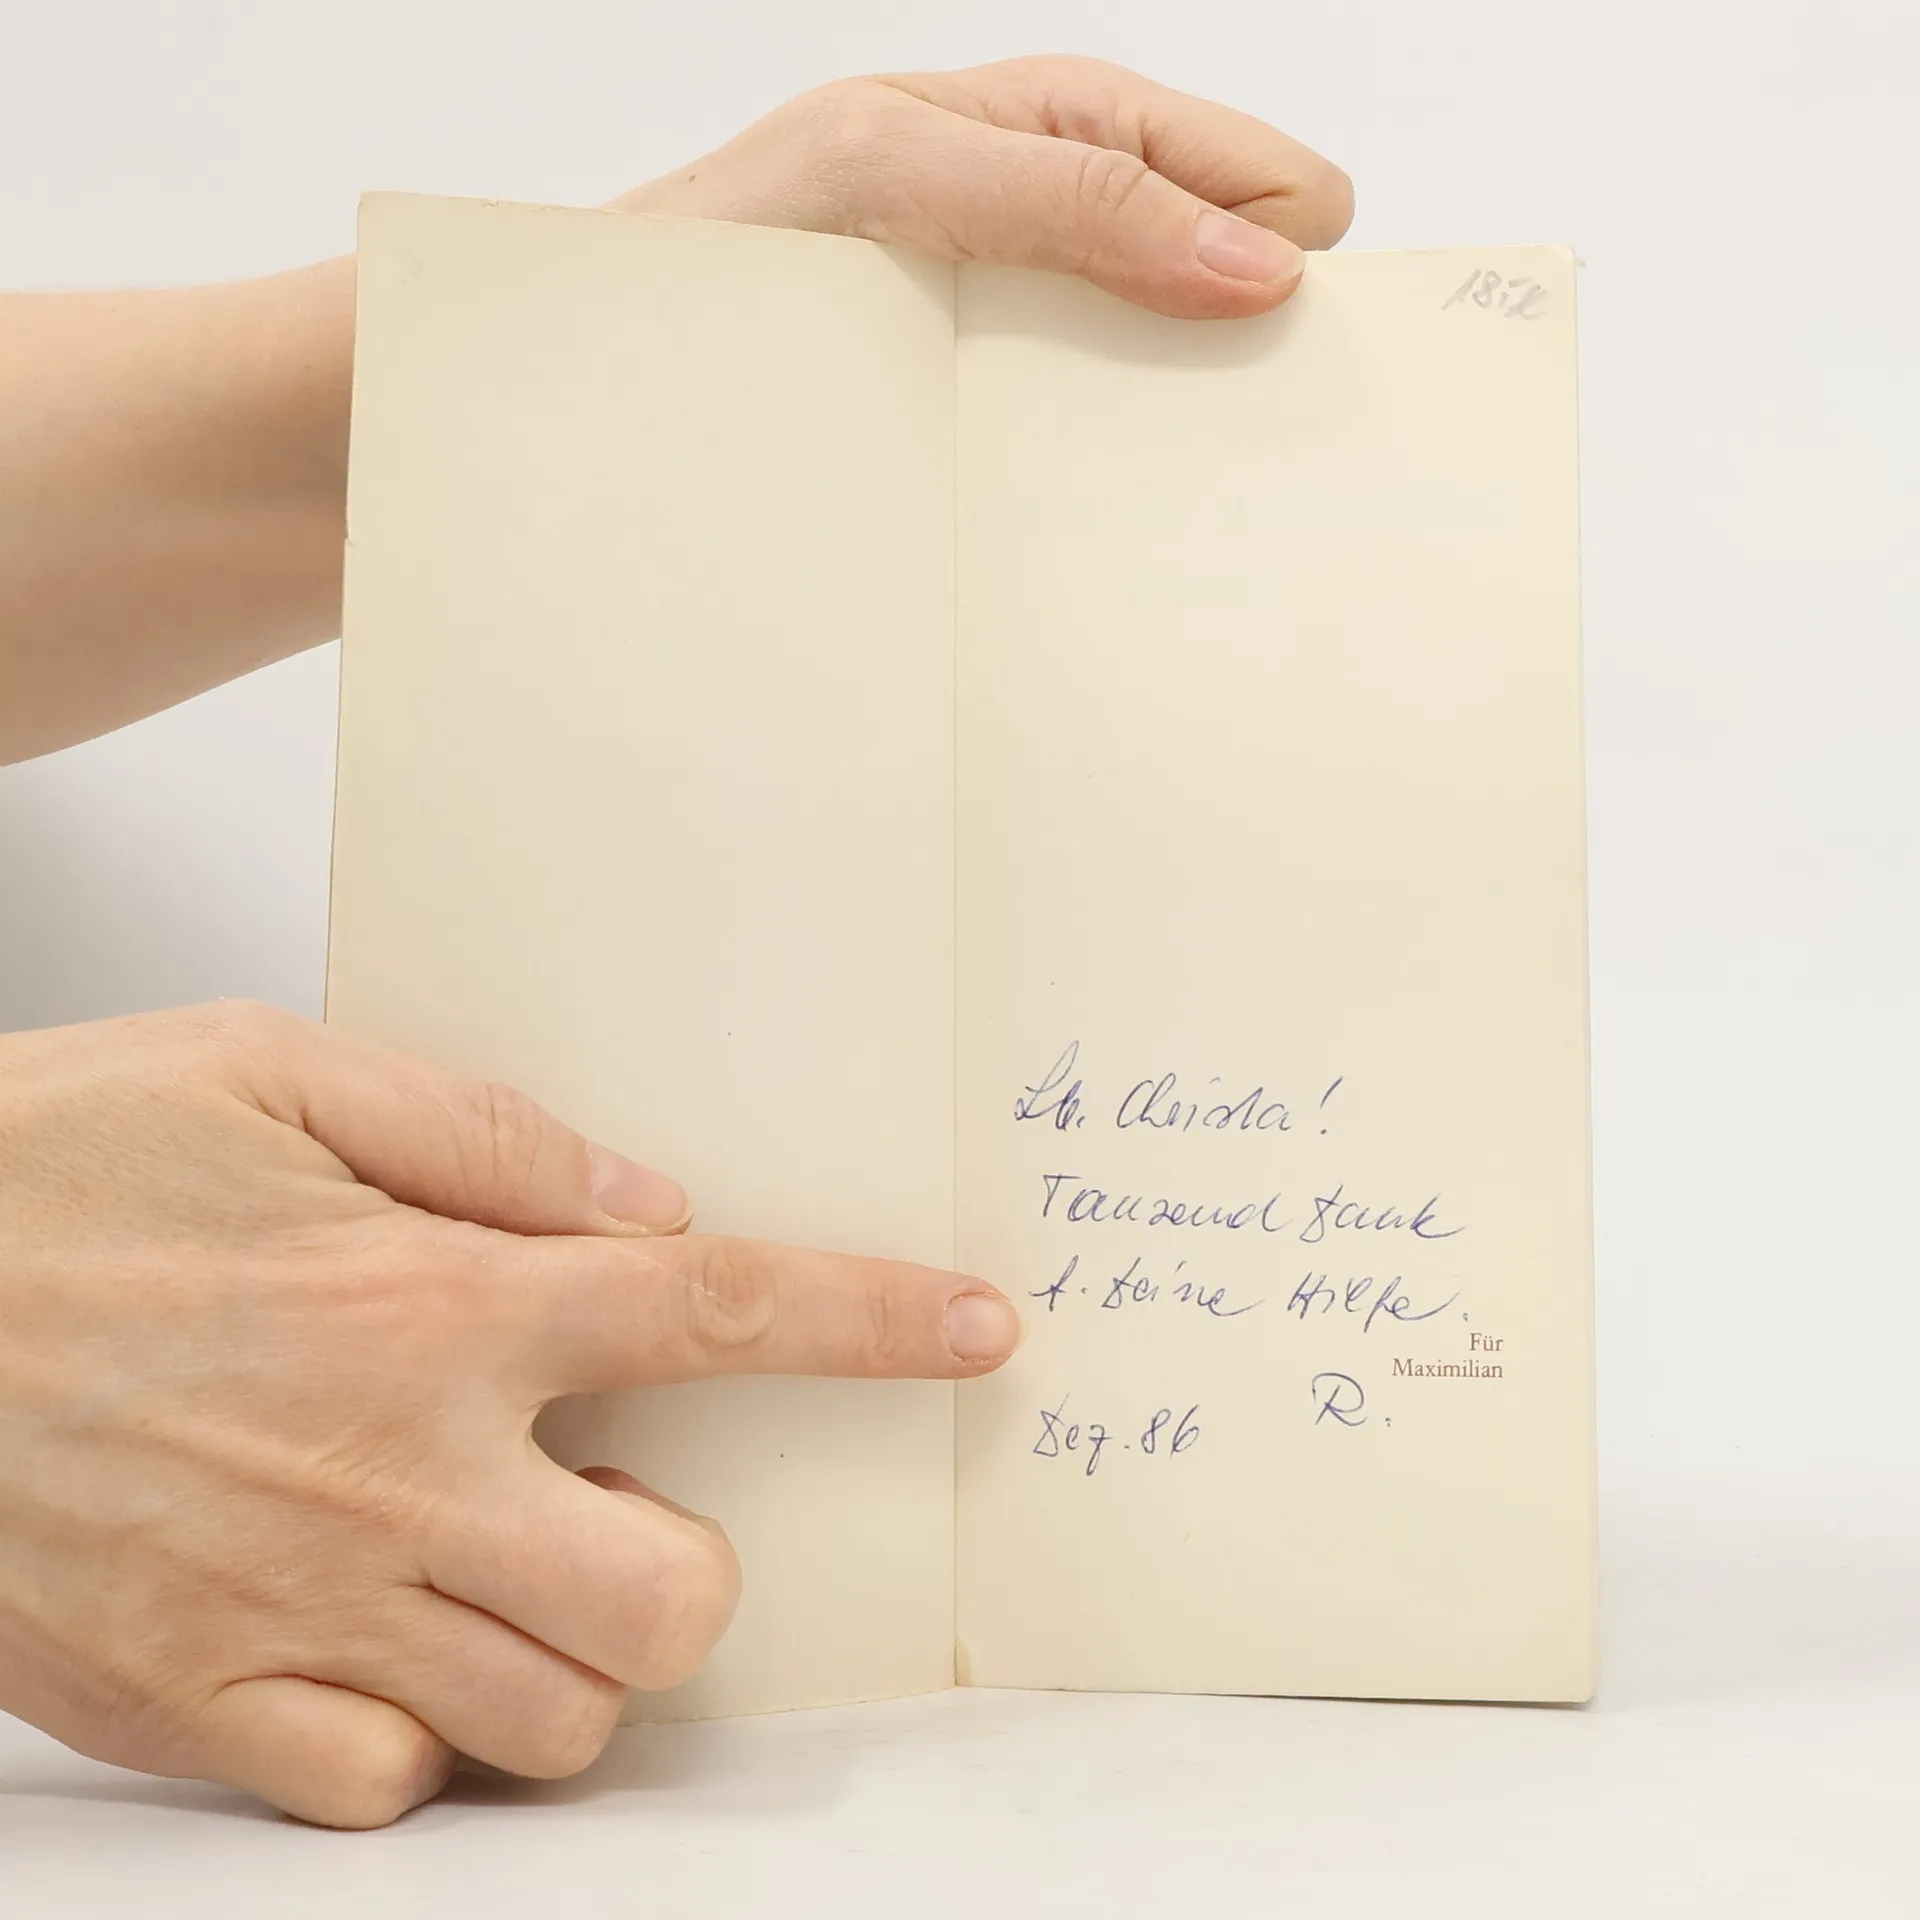 Lb. Christa!
Tausend Dank
f. Deine Hilfe.
Für
Maximilian
R.
Dez. 86